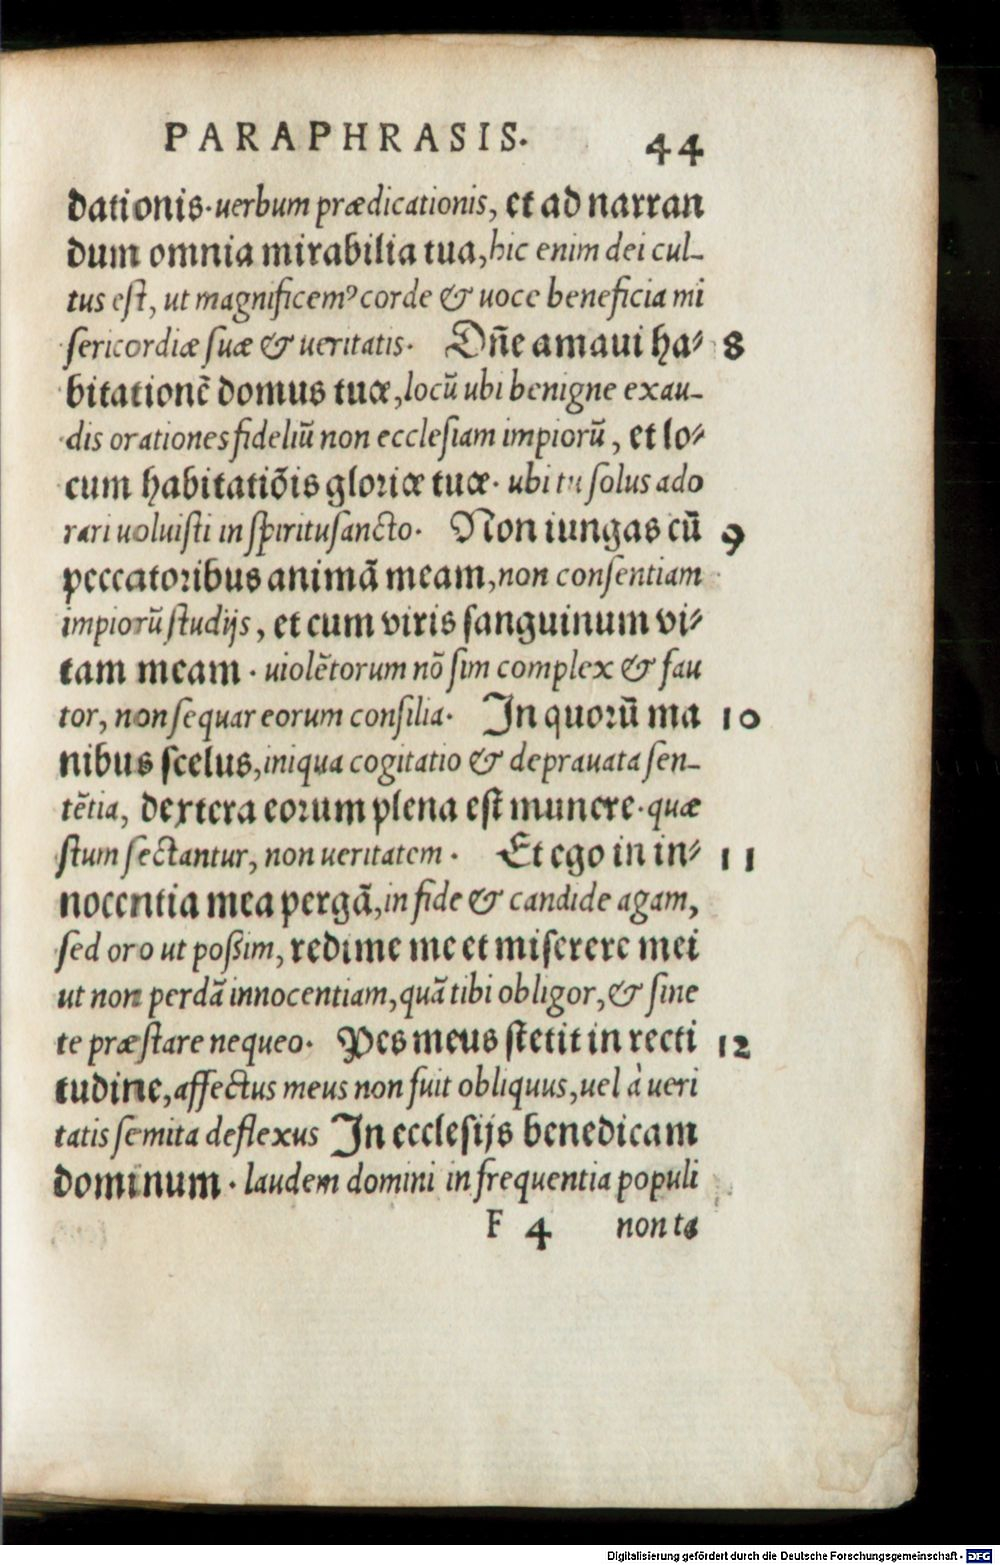 PARAPHRASIS. 44
dationis. uerbum prædicationis, et ad narran
dum omnia mirabilia tua, hic enim dei cul-
tus est, ut magnificemꝰ corde & uoce beneficia mi
sericordiæ suæ & ueritatis. Dn̄e amaui ha- 8
bitationē domus tuæ, locū ubi benigne exau-
dis orationes fideliū non ecclesiam impiorū, et lo-
cum habitatiōis gloriæ tuæ. ubi tu solus ado
rari uoluisti in spiritusancto. Non iungas cū 9
peccatoribus animā meam, non consentiam
impiorū studijs, et cum viris sanguinum vi-
tam meam. uiolētorum nō sim complex & fau
tor, non sequar eorum consilia. In quorū ma 10
nibus scelus, iniqua cogitatio & deprauata sen-
tētia, dextera eorum plena est munere. quæ
stum sectantur, non ueritatem. Et ego in in- 11
nocentia mea pergā, in fide & candide agam,
sed oro ut possim, redime me et miserere mei
ut non perdā innocentiam, quā tibi obligor, & sine
te præstare nequeo. Pes meus stetit in recti 12
tudine, affectus meus non fuit obliquus, uel à ueri
tatis semita deflexus In ecclesijs benedicam
dominum. laudem domini in frequentia populi
F 4 non ta
Digitalisierung gefördert durch die Deutsche Forschungsgemeinschaft - DFG